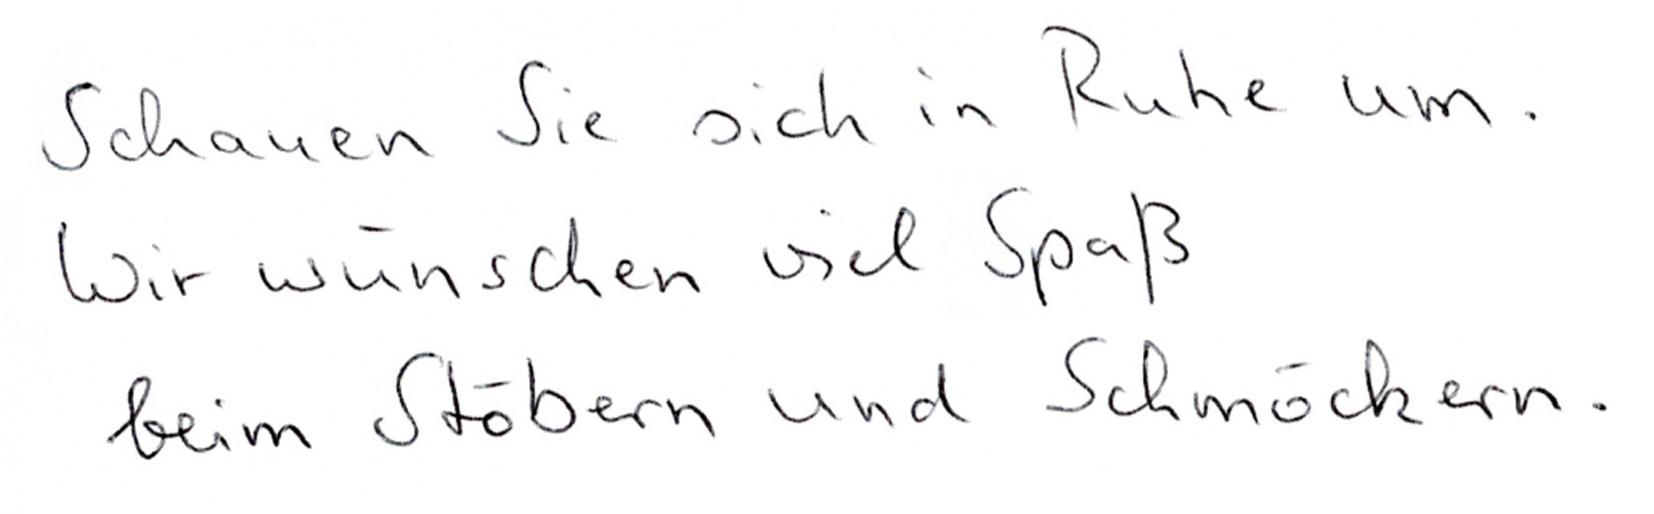 Schauen Sie sich in Ruhe um.
Wir wünschen viel Spaß
beim Stöbern und Schmöckern.